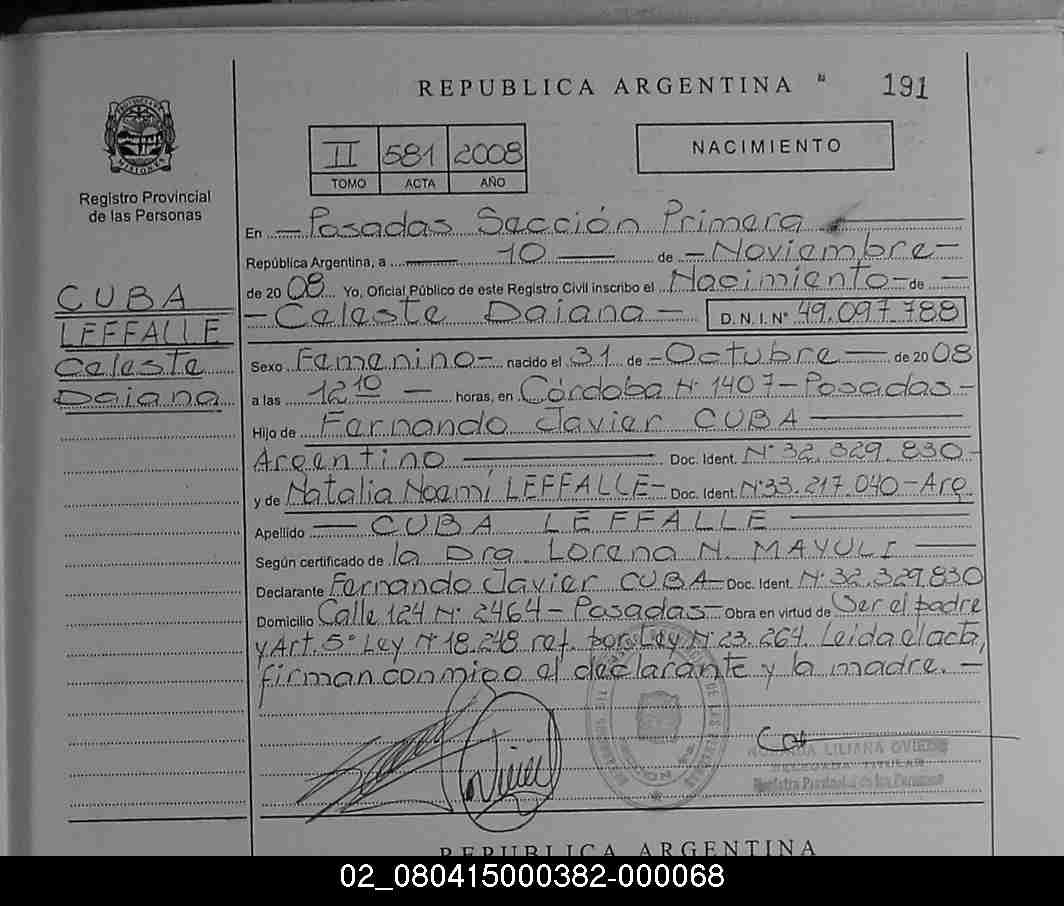 REPUBLICA ARGENTINA
191
II 581 2008
TOMO ACTA AÑO
NACIMIENTO
Registro Provincial
de las Personas
CUBA
LEFFALLE
Celeste
Daiana
En Posadas Sección Primera
República Argentina, a 10 de Noviembre
de 2008 Yo, Oficial Público de este Registro Civil inscribo el Nacimiento de
Celeste Daiana D.N.I. N° 49.097.788
Sexo Femenino nacido el 31 de Octubre de 2008
a las 12 10 horas, en Córdoba N° 1407 - Posadas
Hijo de Fernando Javier CUBA
Argentino Doc. Ident. N° 32.329.830
y de Natalia Noemí LEFFALLE Doc. Ident. N° 33.217.040 - Arg
Apellido CUBA LEFFALLE
Según certificado de la Dra. Lorena N. MAYULI
Declarante Fernando Javier CUBA Doc. Ident. N° 32.329.830
Domicilio Calle 124 N° 2464 - Posadas Obra en virtud de Ser el padre
y Art. 5° Ley N° 18.248 ref. por Ley N° 23.264. Leida el acta,
firman conmigo el declarante y la madre.
LILIANA OVIEDO
DELEGADA TITULAR
Registro Provincial de las Personas
REPUBLICA ARGENTINA
02_080415000382-000068